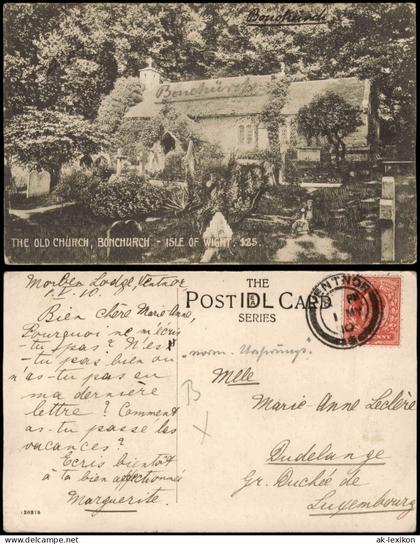 Bonchurch
Bonchurch
THE OLD CHURCH, BONCHURCH - ISLE OF WIGHT. 125.
THE
POST IDL CARD
SERIES
VENTNOR
PENNY
Lodge, Ventnor
1. V. 10.
Bien chère Marie-Anne,
Pourquoi ne m'écris-
tu pas? N'es-
tu pas bien ou
n'as-tu pas eu
ma dernière
lettre? Comment
as-tu passé les
vacances?
Ecris bientôt
à ta bien affectionnée
Marguerite.
Melle
Marie-Anne Leclère
Dudelange
Gr. Duché de
Luxembourg
B
X
© www.ak-lexikon.com
ak-lexikon.de